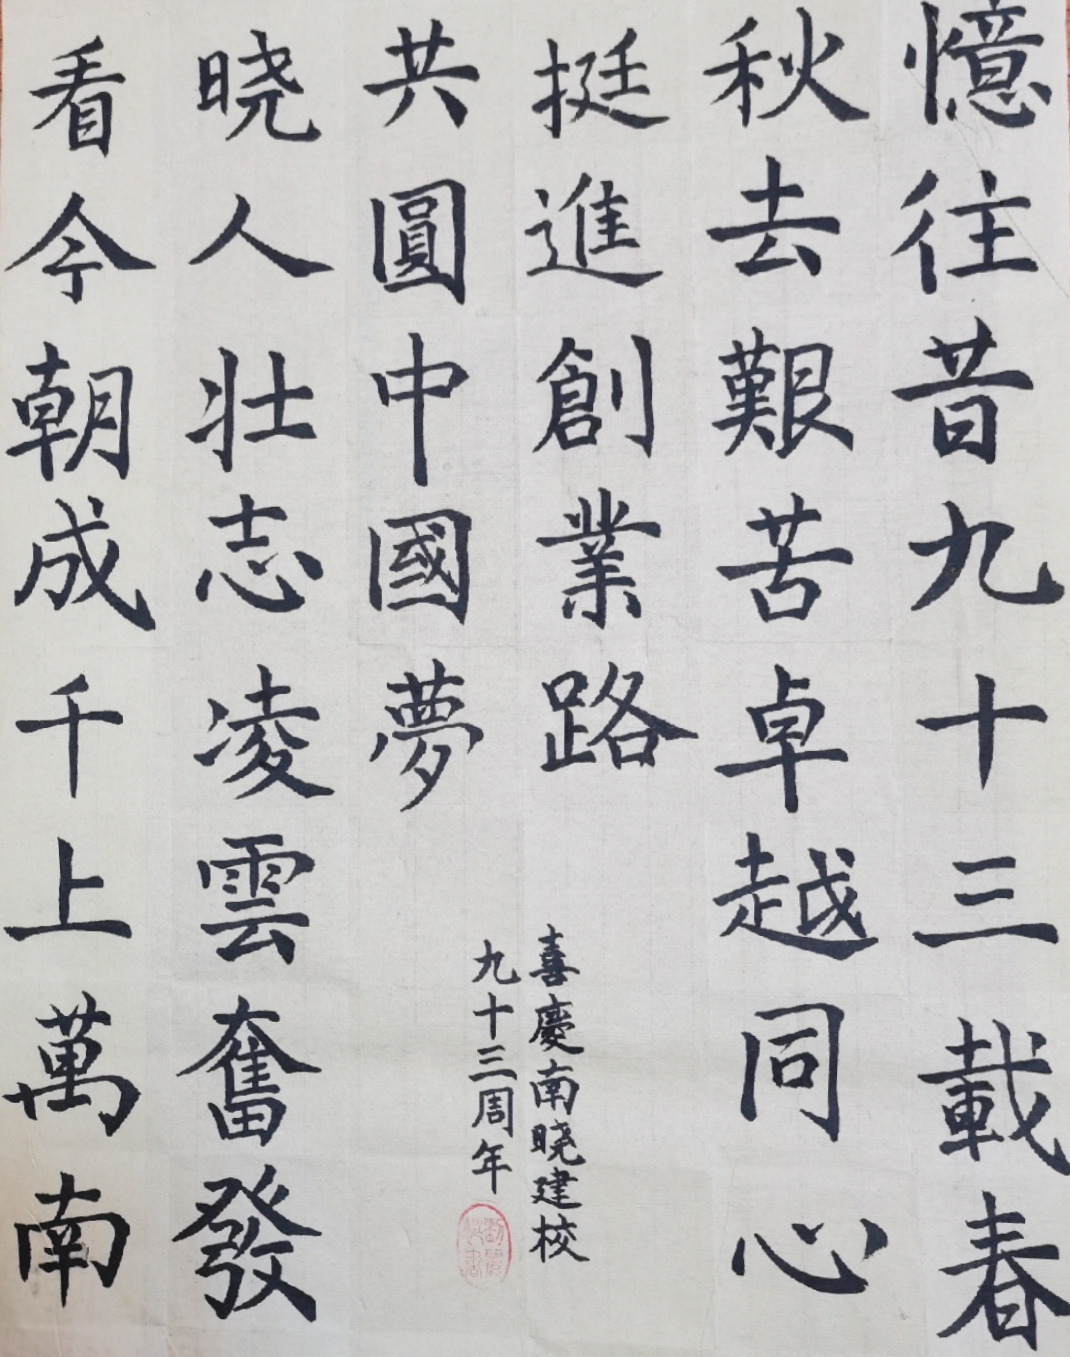 憶往昔九十三載春
秋去艱苦卓越同心
挺進創業路
看今朝成千上萬南
晓人壮志凌雲奮發
共圓中國夢
喜慶南晓建校
九十三周年